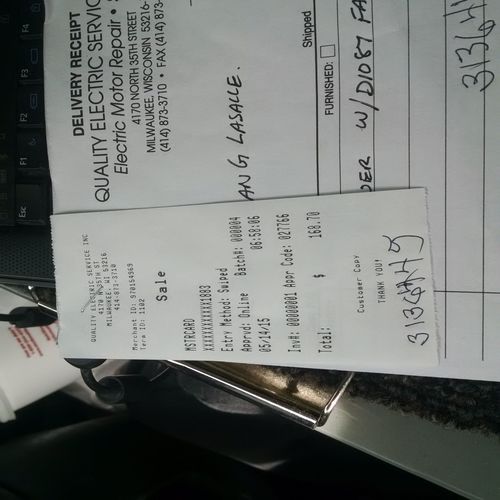 DELIVERY RECEIPT
QUALITY ELECTRIC SERVIC
Electric Motor Repair •
4170 NORTH 35TH STREET
MILWAUKEE, WISCONSIN 53216-
(414) 873-3710 • FAX (414) 87
ANG LASALLE.
Shipped
FURNISHED:
DER W/D1087 FA
QUALITY ELECTRIC SERVICE INC
4170 N 35TH ST
MILWAUKEE, WI 53216
414-873-3710
Merchant ID: 970154969
Term ID: 1102
Sale
MSTRCARD
XXXXXXXXXXXX1883
Entry Method: Swiped
Apprvd: Online Batch#: 000004
05/14/15 06:58:06
Inv#: 00000001 Appr Code: 027766
Total: $ 168.70
Customer Copy
THANK YOU!
Esc
F1
F2
F3
F4